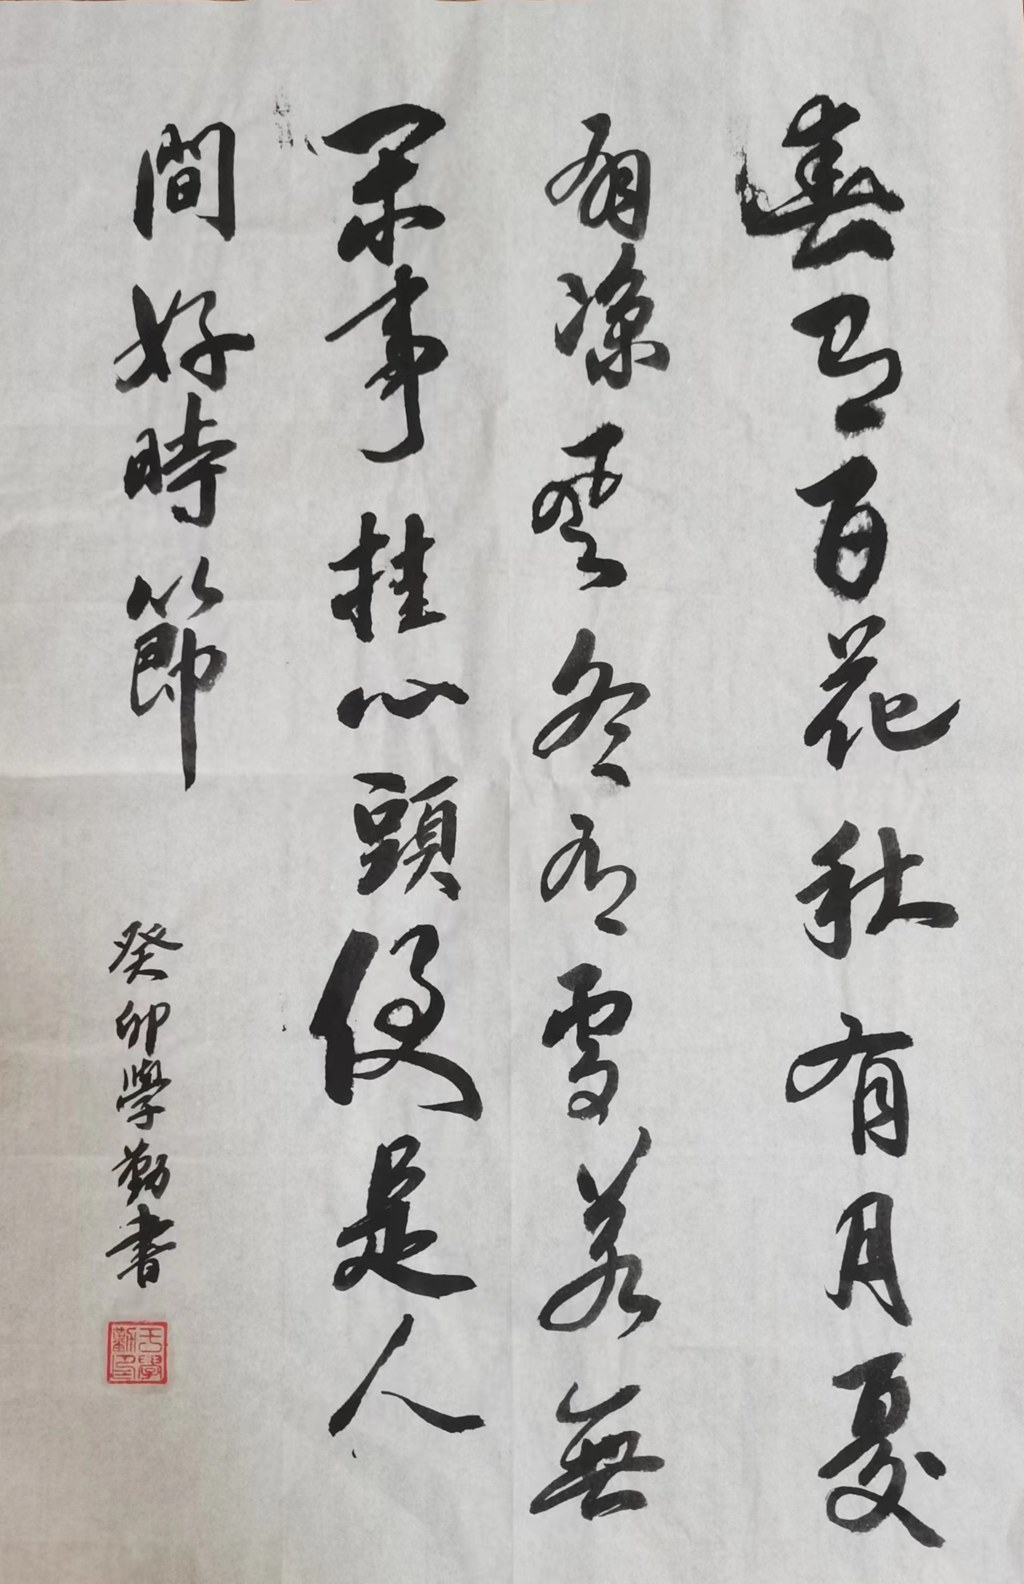 春有百花秋有月夏
有涼風冬有雪若無
閑事挂心頭便是人
間好時節
癸卯學勤書
王學勤印